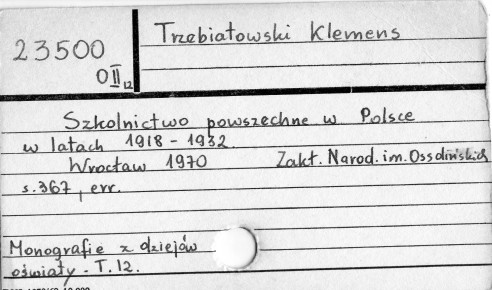 23500
O II 12
Trzebiatowski Klemens
Szkolnictwo powszechne w Polsce
w latach 1918 - 1932
Wrocław 1970 Zakł. Narod. im. Ossolińskich
s. 367, err.
Monografie z dziejów
oświaty - T. 12.